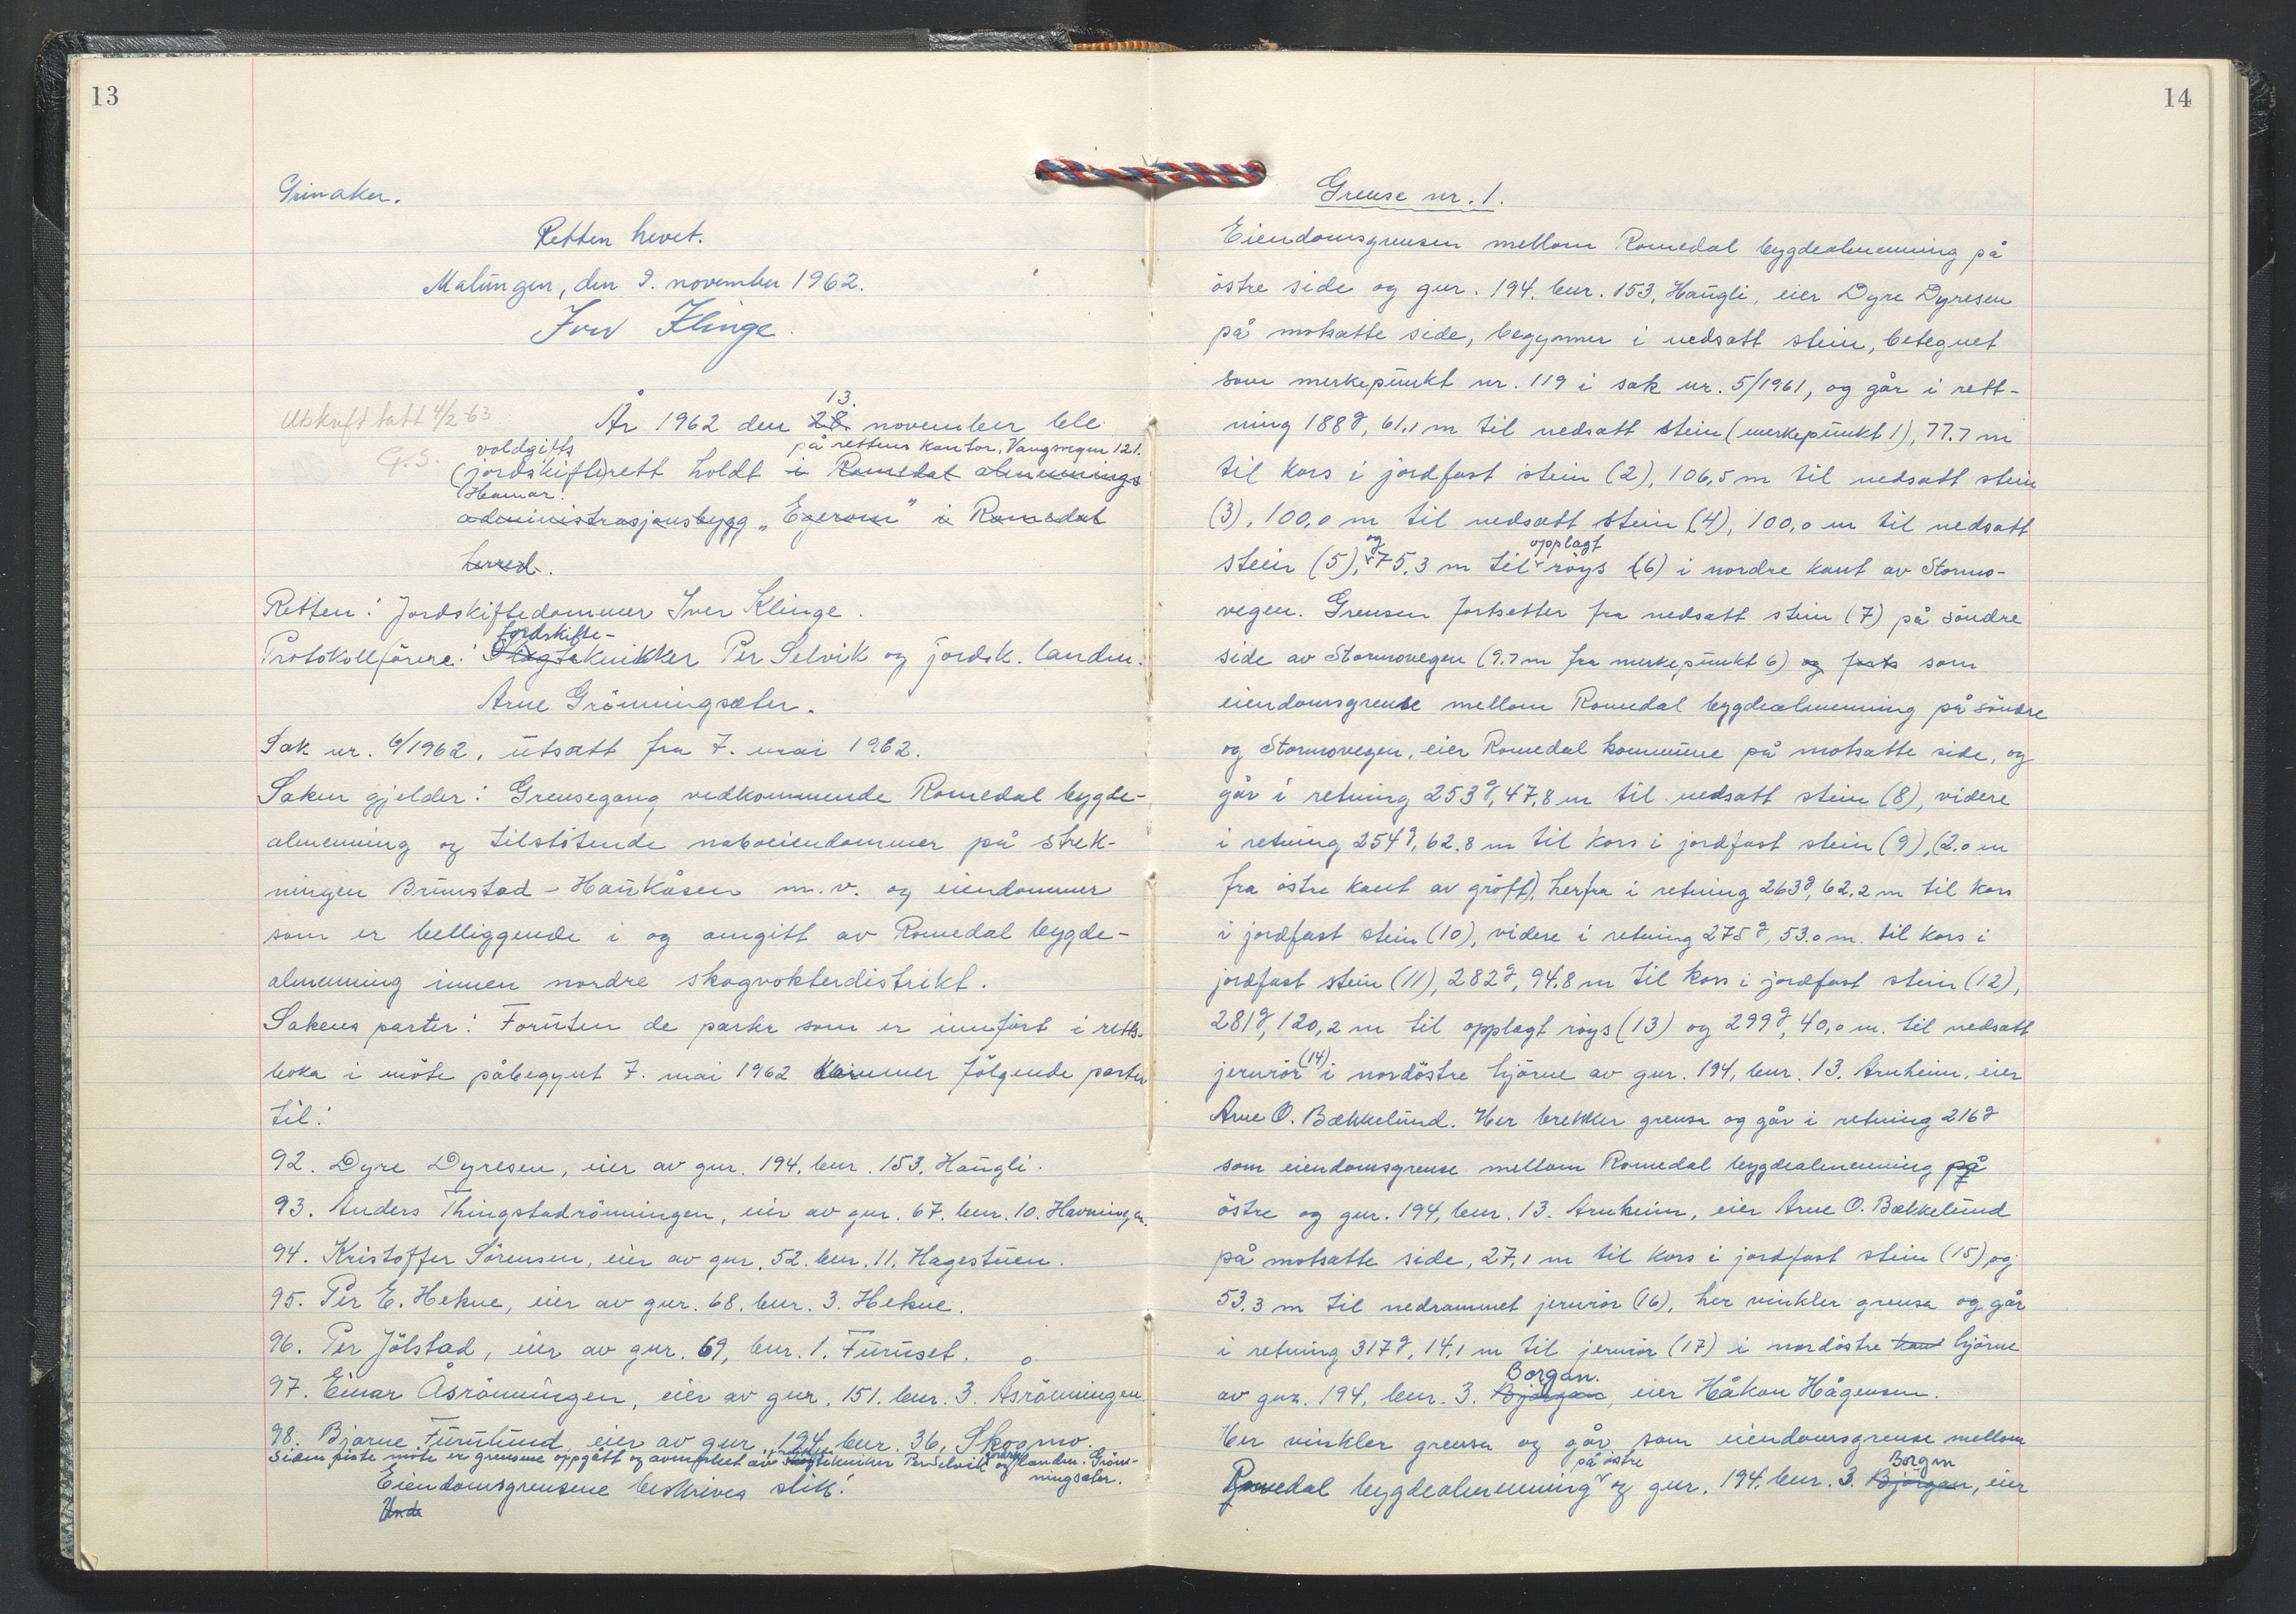 13
Grinaker.
Retten hevet.
Malungen, den 9. november 1962.
Iver Klinge.
Utskrift tatt 4/2-63
G.S.
13.
År 1962 den 28. november ble
voldgifts på rettens kontor, Vangsvegen 121.
(jordskifte)rett holdt i Romedal almennings
Hamar.
administrasjonsbygg „Egerom" i Romedal
herred.
Retten: Jordskiftedommer Iver Klinge.
Jordskifte-
Protokollförere: Skogteknikker Per Selvik og jordsk. landm.
Arne Grönningsæter.
Sak nr. 6/1962, utsatt fra 7. mai 1962.
Saken gjelder: Grensegang vedkommende Romedal bygde-
almenning og tilstötende naboeiendommer på strek-
ningen Brunstad - Haukåsen m.v. og eiendommer
som er beliggende i og omgitt av Romedal bygde-
almenning innen nordre skogvokterdistrikt.
Sakens parter: Foruten de parter som er innfört i retts-
boka i möte påbegynt 7. mai 1962 kommer fölgende parter
til:
92. Dyre Dyresen, eier av gnr. 194, bnr. 153, Haugli.
93. Anders Thingstadrönningen, eier av gnr. 67. bnr. 10. Havningen.
94. Kristoffer Sörensen, eier av gnr. 52. bnr. 11, Hagestuen.
95. Per E. Hekne, eier av gnr. 68. bnr. 3. Hekne.
96. Per Jölstad, eier av gnr. 69, bnr. 1. Furuset.
97. Einar Åsrönningen, eier av gnr. 151. bnr. 3. Åsrönningen
98. Bjarne Furulund, eier av gnr. 194, bnr. 36, Skogmo.
Siden siste möte er grensene oppgått og avmerket av tekniker Per Selvik og landm. Grön-
ningsæter.
Eiendomsgrensene beskrives slik:
Unde
14
Grense nr. 1.
Eiendomsgrensen mellom Romedal bygdealmenning på
östre side og gnr. 194. bnr. 153, Haugli, eier Dyre Dyresen
på motsatte side, begynner i nedsatt stein, betegnet
som merkepunkt nr. 119 i sak nr. 5/1961, og går i rett-
ning 188g, 61,1 m til nedsatt stein (merkepunkt 1), 77.7 m
til kors i jordfast stein (2), 106,5 m til nedsatt stein
(3), 100,0 m til nedsatt stein (4), 100,0 m til nedsatt
og opplagt
stein (5), 75,3 m til röys (6) i nordre kant av Stormo-
vegen. Grensen fortsetter fra nedsatt stein (7) på söndre
side av Stormovegen (9.7 m fra merkepunkt 6) og forts som
eiendomsgrense mellom Romedal bygdealmenning på söndre
og Stormovegen, eier Romedal kommune på motsatte side, og
går i retning 253g, 47,8 m til nedsatt stein (8), videre
i retning 254g, 62.8 m til kors i jordfast stein (9), (2.0 m
fra östre kant av gröft), herfra i retning 263g, 62,2 m til kors
i jordfast stein (10), videre i retning 275g, 53.0 m. til kors i
jordfast stein (11), 282g, 94.8 m til kors i jordfast stein (12),
281g, 120,2 m til opplagt röys (13) og 299g, 40,0 m. til nedsatt
(14)
jernrör i nordöstre hjörne av gnr. 194, bnr. 13. Arnheim, eier
Arne O. Bækkelund. Her brekker grensa og går i retning 216g
som eiendomsgrense mellom Romedal bygdealmenning på
östre og gnr. 194, bnr. 13. Arnheim, eier Arne O. Bækkelund
på motsatte side, 27,1 m til kors i jordfast stein (15) og
53.3 m til nedrammet jernrör (16), her vinkler grensa og går
i retning 317g, 14,1 m til jernrör (17) i nordöstre hjörne
Borgan.
av gnr. 194, bnr. 3. Bjørgan, eier Håkon Hågensen.
Her vinkler grensa og går som eiendomsgrense mellom
på östre Borgan
Romedal bygdealmenning og gnr. 194, bnr. 3. Bjørgan, eier